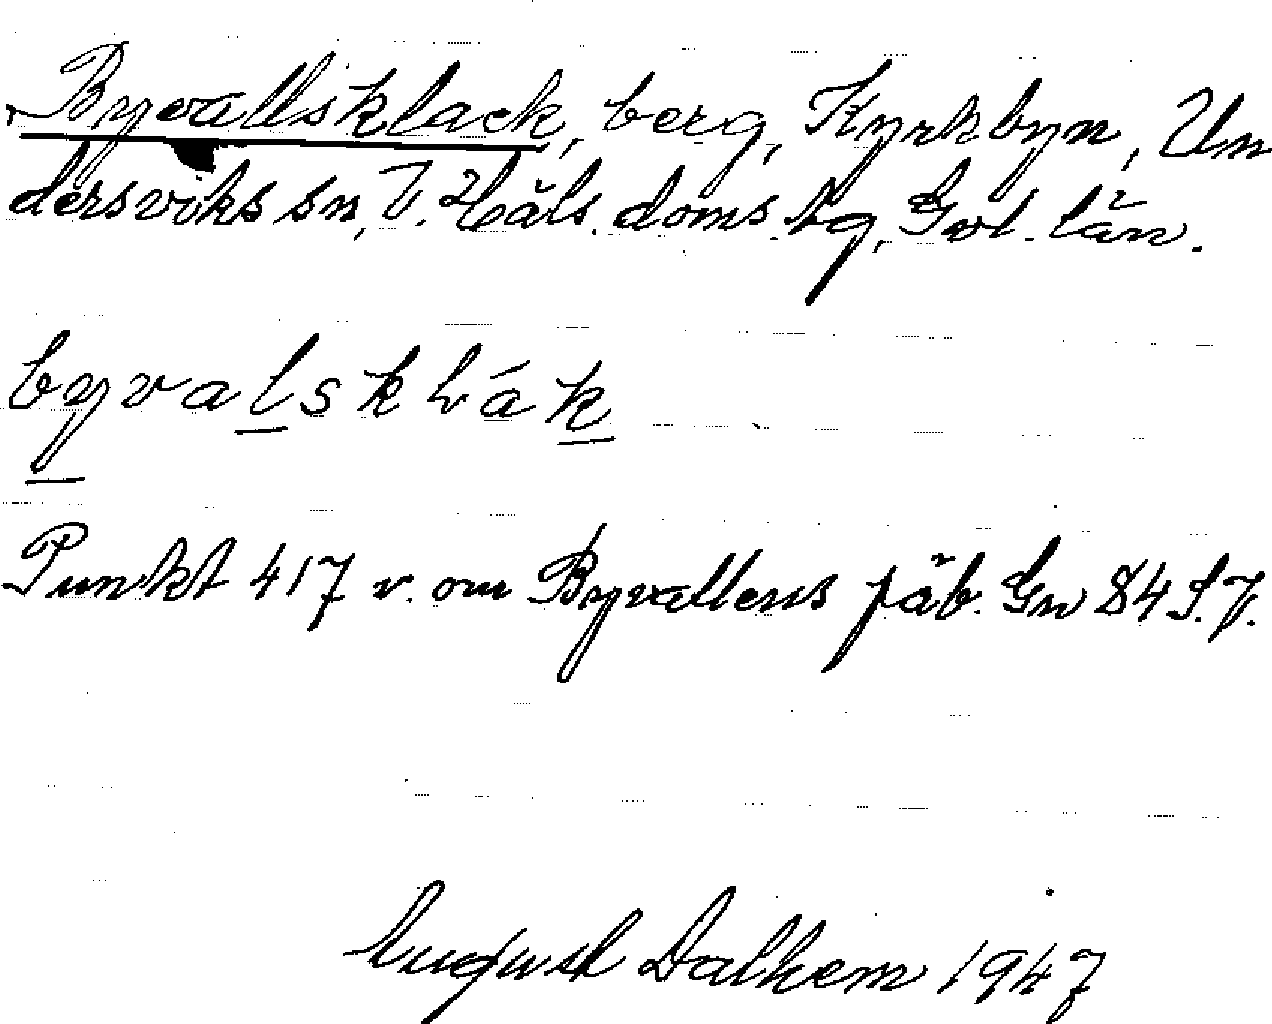 Byvallsklack, berg, Kyrkbyn, Un
dersviks sn, V. Häls. doms. lg, Gvl. län.
byvalsklák
Punkt 417 v. om Byvallens fäb. Gn 84 S.V.
August Dalhem 1947